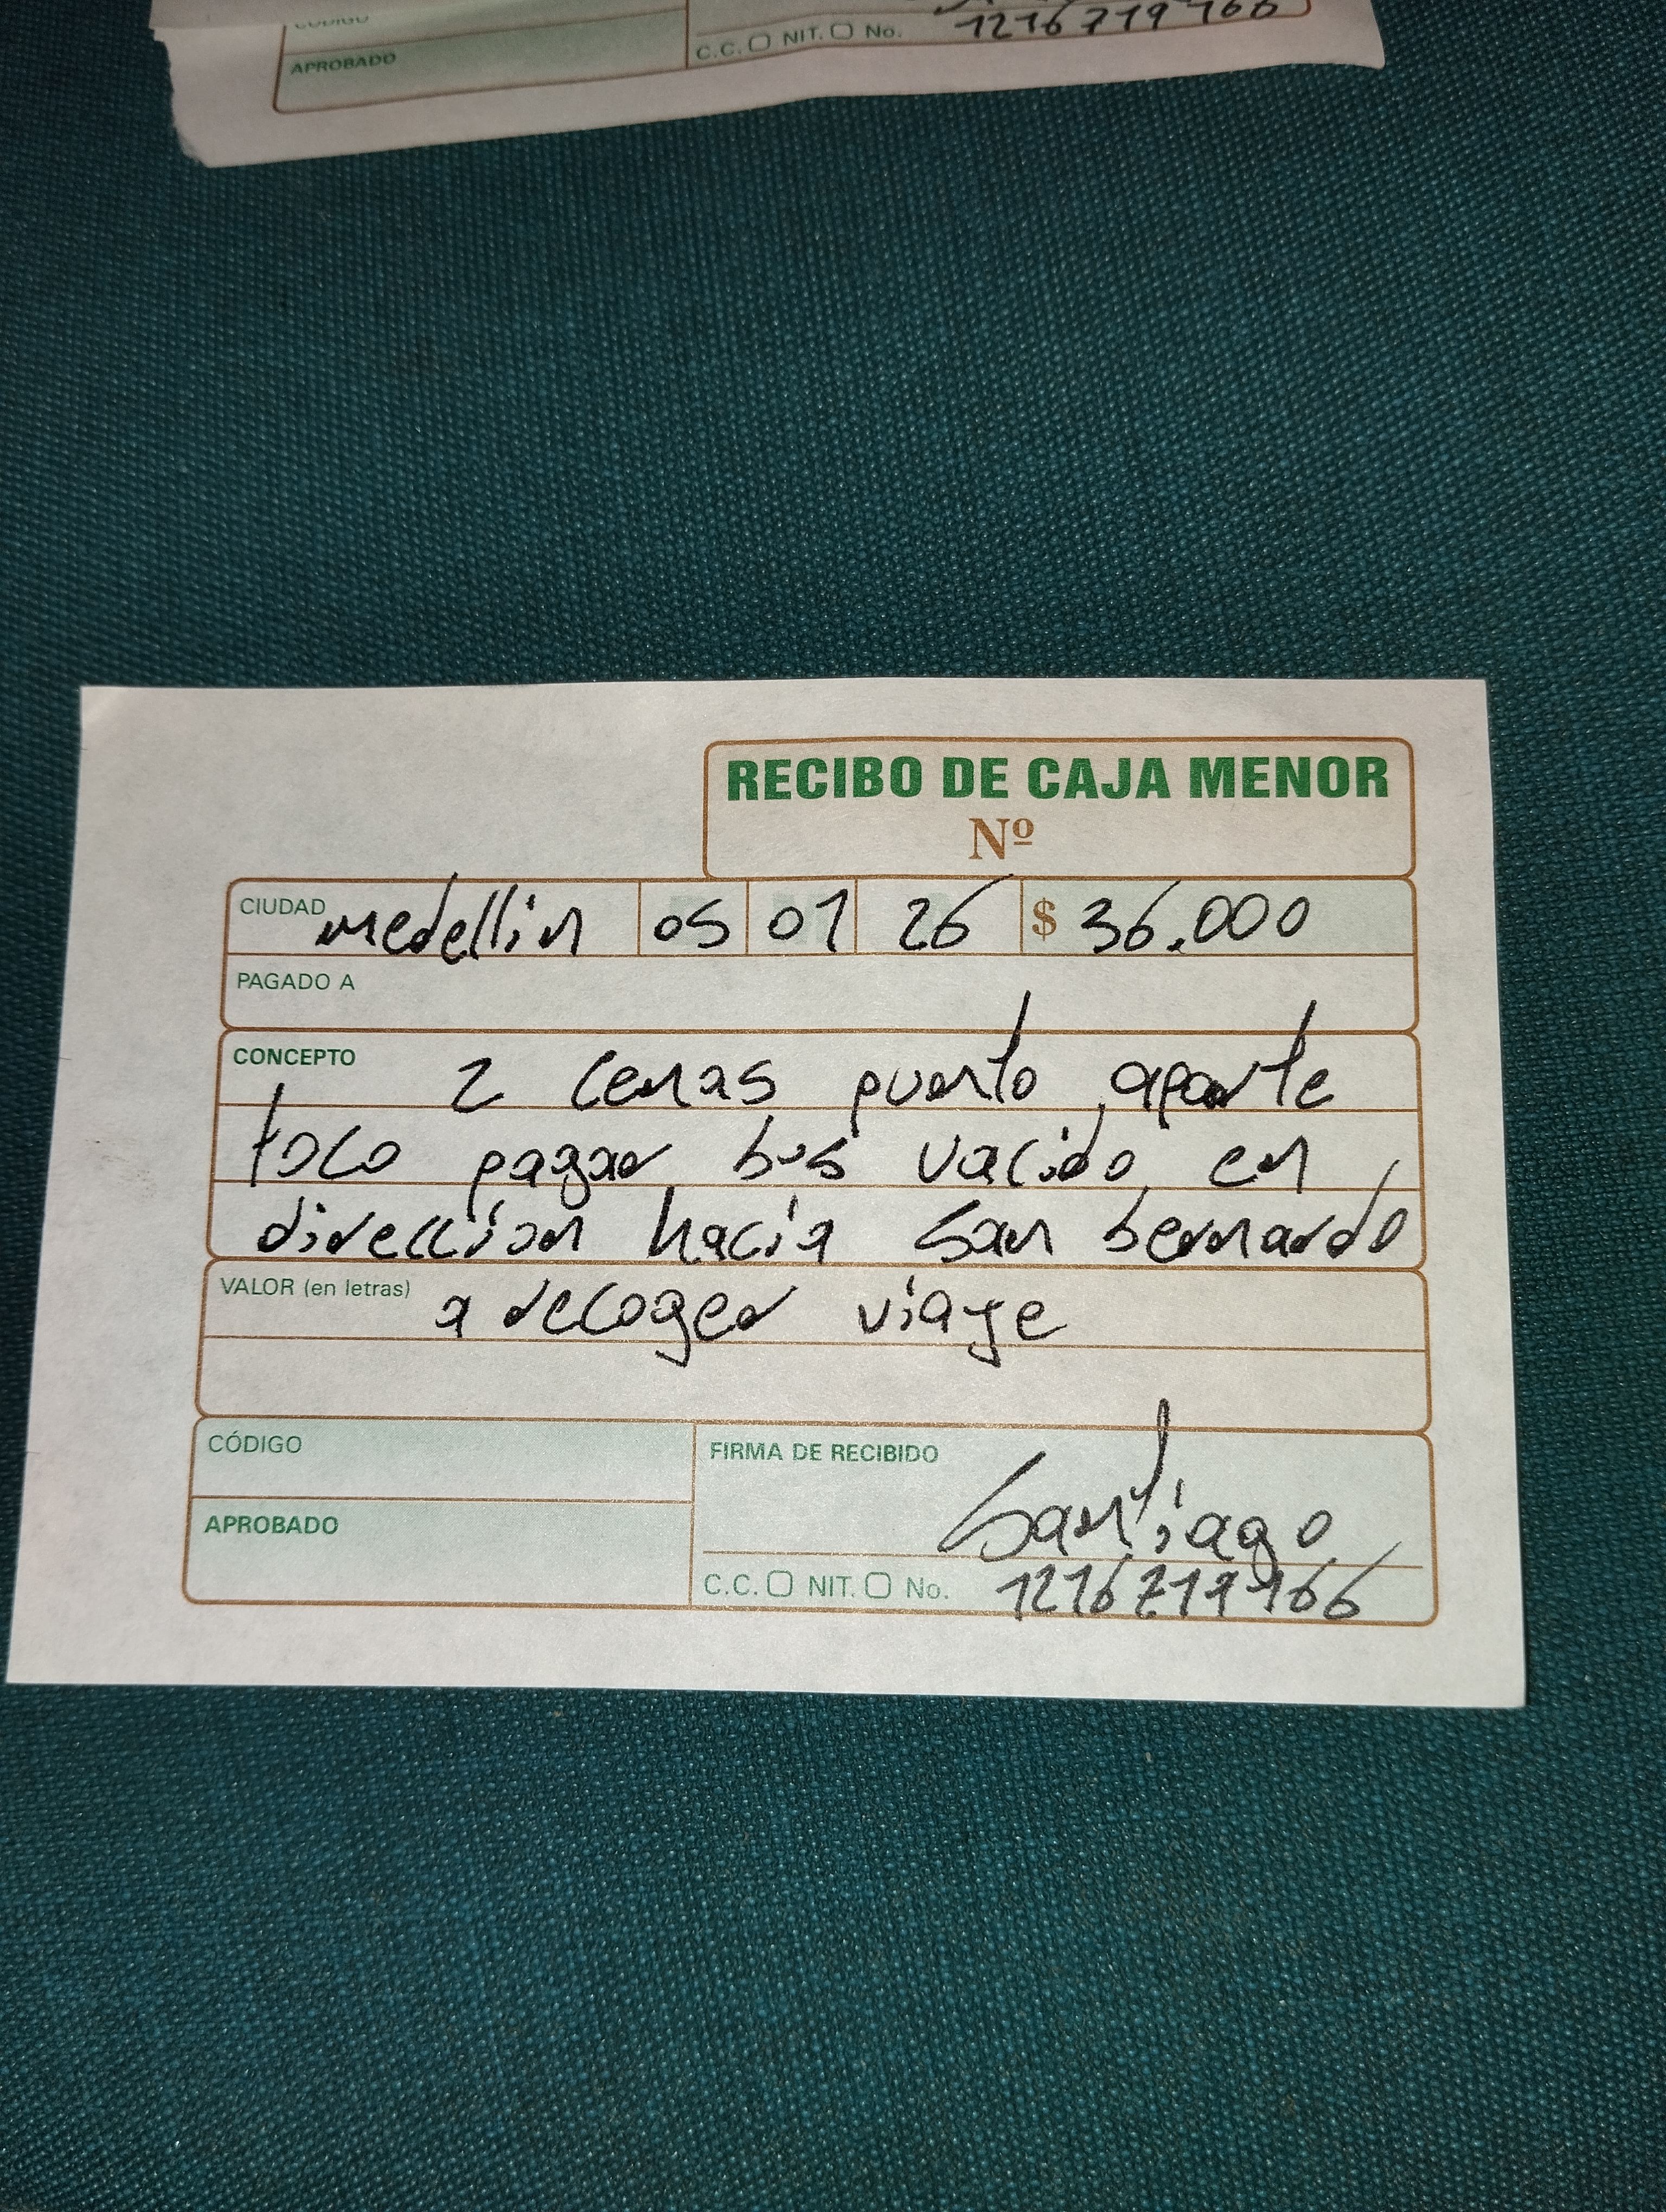 CÓDIGO
APROBADO
C.C. NIT. No. 1216719166
RECIBO DE CAJA MENOR
Nº
CIUDAD medellin 05 01 26 $ 36.000
PAGADO A
CONCEPTO 2 cenas puerto aparte
toco pagar bus vacido en
direccion hacia San bernardo
VALOR (en letras) a recoger viaje
CÓDIGO
FIRMA DE RECIBIDO Santiago
APROBADO
C.C. NIT. No. 1216719166